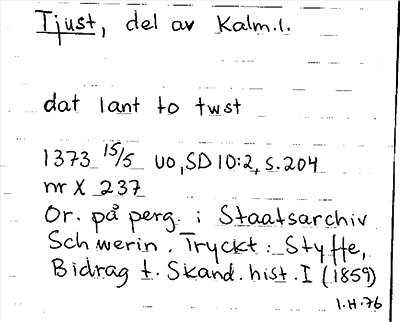 Tjust, del av Kalm.l.
dat lant to twst
1373 15/5 uo, SD 10:2, s.204
nr X 237
Or. på perg. i Staatsarchiv
Schwerin. Tryckt: Styffe,
Bidrag t. Skand. hist. I (1859)
I.H.76